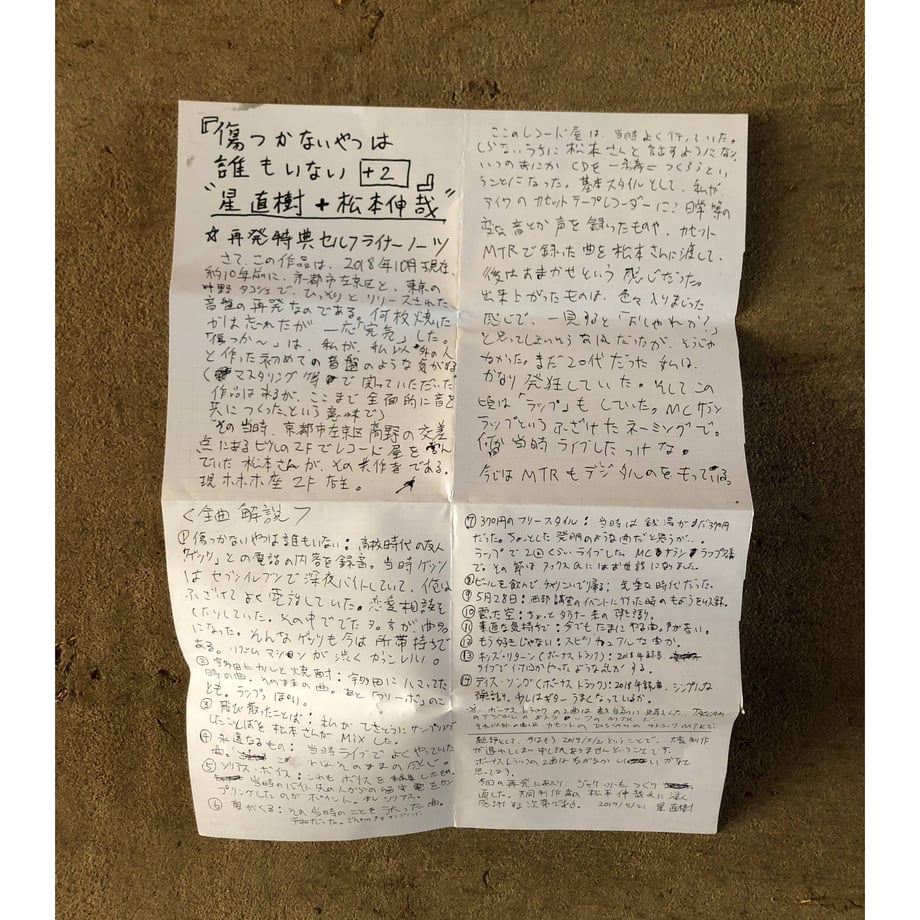 『傷つかないやつは
誰もいない +2 』
"星直樹+松本伸哉"
☆再発特典セルフライナーノーツ
さて、この作品は、2018年10月現在、
約10年前に、京都市左京区と、東京の
中野タコシェで、ひっそりとリリースされた
音盤の再発なのである。何枚焼いた
かは忘れたが、一応「完売」した。
「傷つか〜」は、私が、私以外の人
と作った初めての音盤のような気がする
(マスタリング等で関っていただいた
作品はあるが、ここまで全面的に音を
共につくった、という意味で)
その当時、京都市左京区高野の交差
点にあるビルの2Fでレコード屋を営ん
でいた松本さんが、その共作者である。
現ホホホ座2F店主。
ここのレコード屋は、当時よく行っていた。
しらないうちに松本さんと話すようになり、
いつのまにかCDを一緒につくろうとい
うことになった。基本スタイルとして、私が、
アイワのカセットテープレコーダーに
変な音とか声を録ったものや、カセット
MTRで録った曲を松本さんに渡して、
後はおまかせという感じだった。
出来上がったものは、色々入りまじった
感じで、一見すると「おしゃれか?」
と思ってしまいそうな
なかった。まだ20代だった私は、
かなり発狂していた。そしてこの
頃は「ラップ」もしていた。MCサラン
ラップというふざけたネーミングで。
何か当時ライブしたっけな。
今じゃMTRもデジタルのをもっている。
<全曲解説>
①傷つかないやつは誰もいない:高校時代の友人
「ゲッツ」との電話の内容を録音。当時ゲッツ
はセブンイレブンで深夜バイトしていて、俺は
ふざけてよく電話していた。恋愛相談を
したりしていた。その中ででたセリフが、曲名
になった。そんなゲッツも今は所帯持ちで
ある。リズムマシーンが渋くかっこいい。
②宇多田ヒカルと焼酎:宇多田にハマってた
時の曲。そのままの曲。あと「ウリーポ」のこ
とも。ラップぽい。
③飛び散ったことば:私がてきとうにサンプリング
したことばを松本さんがMixした。
④永遠なるもの:当時ライブでよくやっていた
曲。これはそのままの感じ。
⑤シリアス・ボイス:これもボイスを
当時のバイト先の人からの留守電をサン
プリングしたのがポイント。
⑥春がくる:その当時のことをうたった曲。
平和だった。
⑦370円のフリースタイル:当時は銭湯がまだ370円
だった。ちょっとした発明のような曲だと思うが、
ラップで2回くらいライブした。MCサランラップ名義
で。その節はファックスaにはお世話になりました。
⑧ビールを飲んで、チャリンコで帰る:気楽な時代だった。
⑨5月28日:西部講堂のイベントに行った時のもようを収録。
⑩曇った空:ちょっとダウナー系の弾き語り。
⑪素直な気持ちで:今でもたまにやる曲。声が若い。
⑫もう好きじゃない:スピリチュアルな曲か。
⑬キッズ・リターン(ボーナストラック):2018年録音。
ライブで何回かやったような気がする。
⑭ディス・ソング(ボーナストラック):2018年録音。シンプルな
弾き語り。少しはギターうまくなっているか。
※ボーナストラックの2曲は数年前に購入した、TASCAM
のデジタルの8トラックのMTRで。
それ以外の曲はカセットの
追記として、今はもう2019/5/21ということで、大変制作
が遅れてしまい申し訳ありませんということです。
ボーナストラックの2曲は
思います。
今回の再発にあたり、ジャケットもつくり
直した。共同制作者の松本伸哉氏に深く
感謝する次第である。 2019/5/21 星直樹